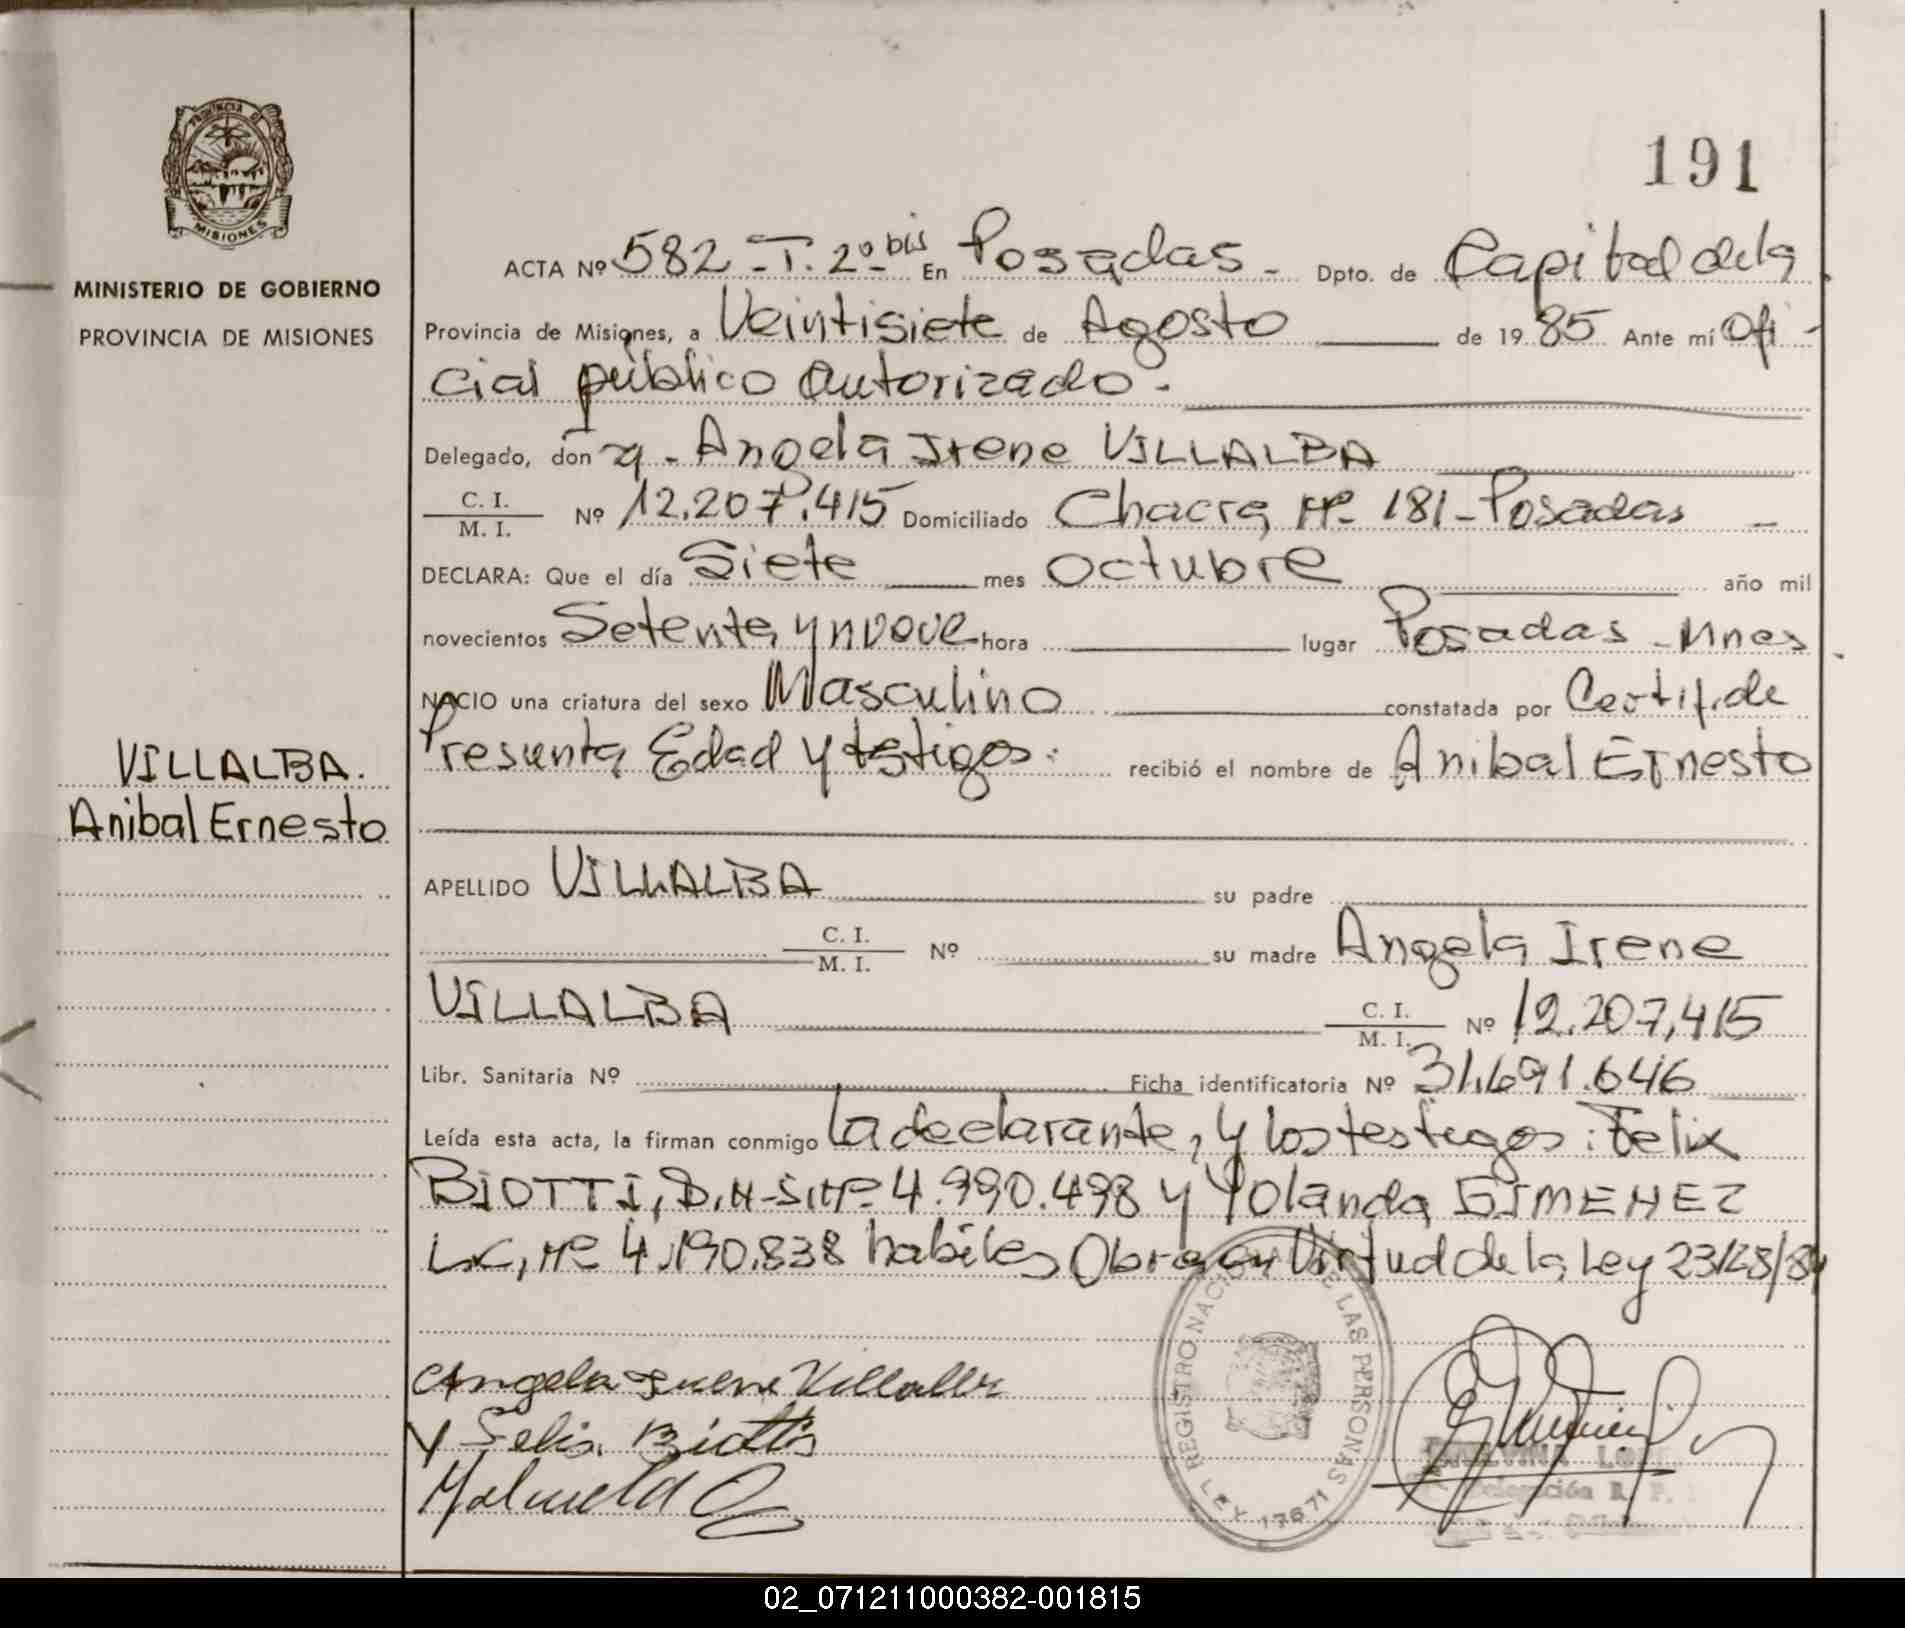 PROVINCIA DE
MISIONES
MINISTERIO DE GOBIERNO
PROVINCIA DE MISIONES
VILLALBA.
Anibal Ernesto
191
ACTA Nº 582 - T. 2º bis En Posadas - Dpto. de Capital de la
Provincia de Misiones, a Veintisiete de Agosto de 1985 Ante mí Ofi-
cial público autorizado.
Delegado, don ña - Angela Irene VILLALBA
C. I.
M. I. Nº 12.207.415 Domiciliado Chacra Nº 181 - Posadas -
DECLARA: Que el día Siete mes Octubre año mil
novecientos Setenta y nueve hora lugar Posadas - Mnes
NACIO una criatura del sexo Masculino constatada por Certif. de
Presunta Edad y testigos: recibió el nombre de Anibal Ernesto
APELLIDO VILLALBA su padre
C. I.
M. I. Nº su madre Angela Irene
VILLALBA C. I.
M. I. Nº 12.207.415
Libr. Sanitaria Nº Ficha identificatoria Nº 31.691.646
Leída esta acta, la firman conmigo la declarante, y los testigos: Felix
BIOTTI, D.N.I. Nº 4.990.498 y Yolanda GIMENEZ
L.C, Nº 4.190.838 habiles Obra en Virtud de la Ley 23128/84
Angela Irene Villalba
y Felix Biotti
REGISTRO NACIONAL DE LAS PERSONAS
LEY 17671
Delegación R. P.
02_071211000382-001815